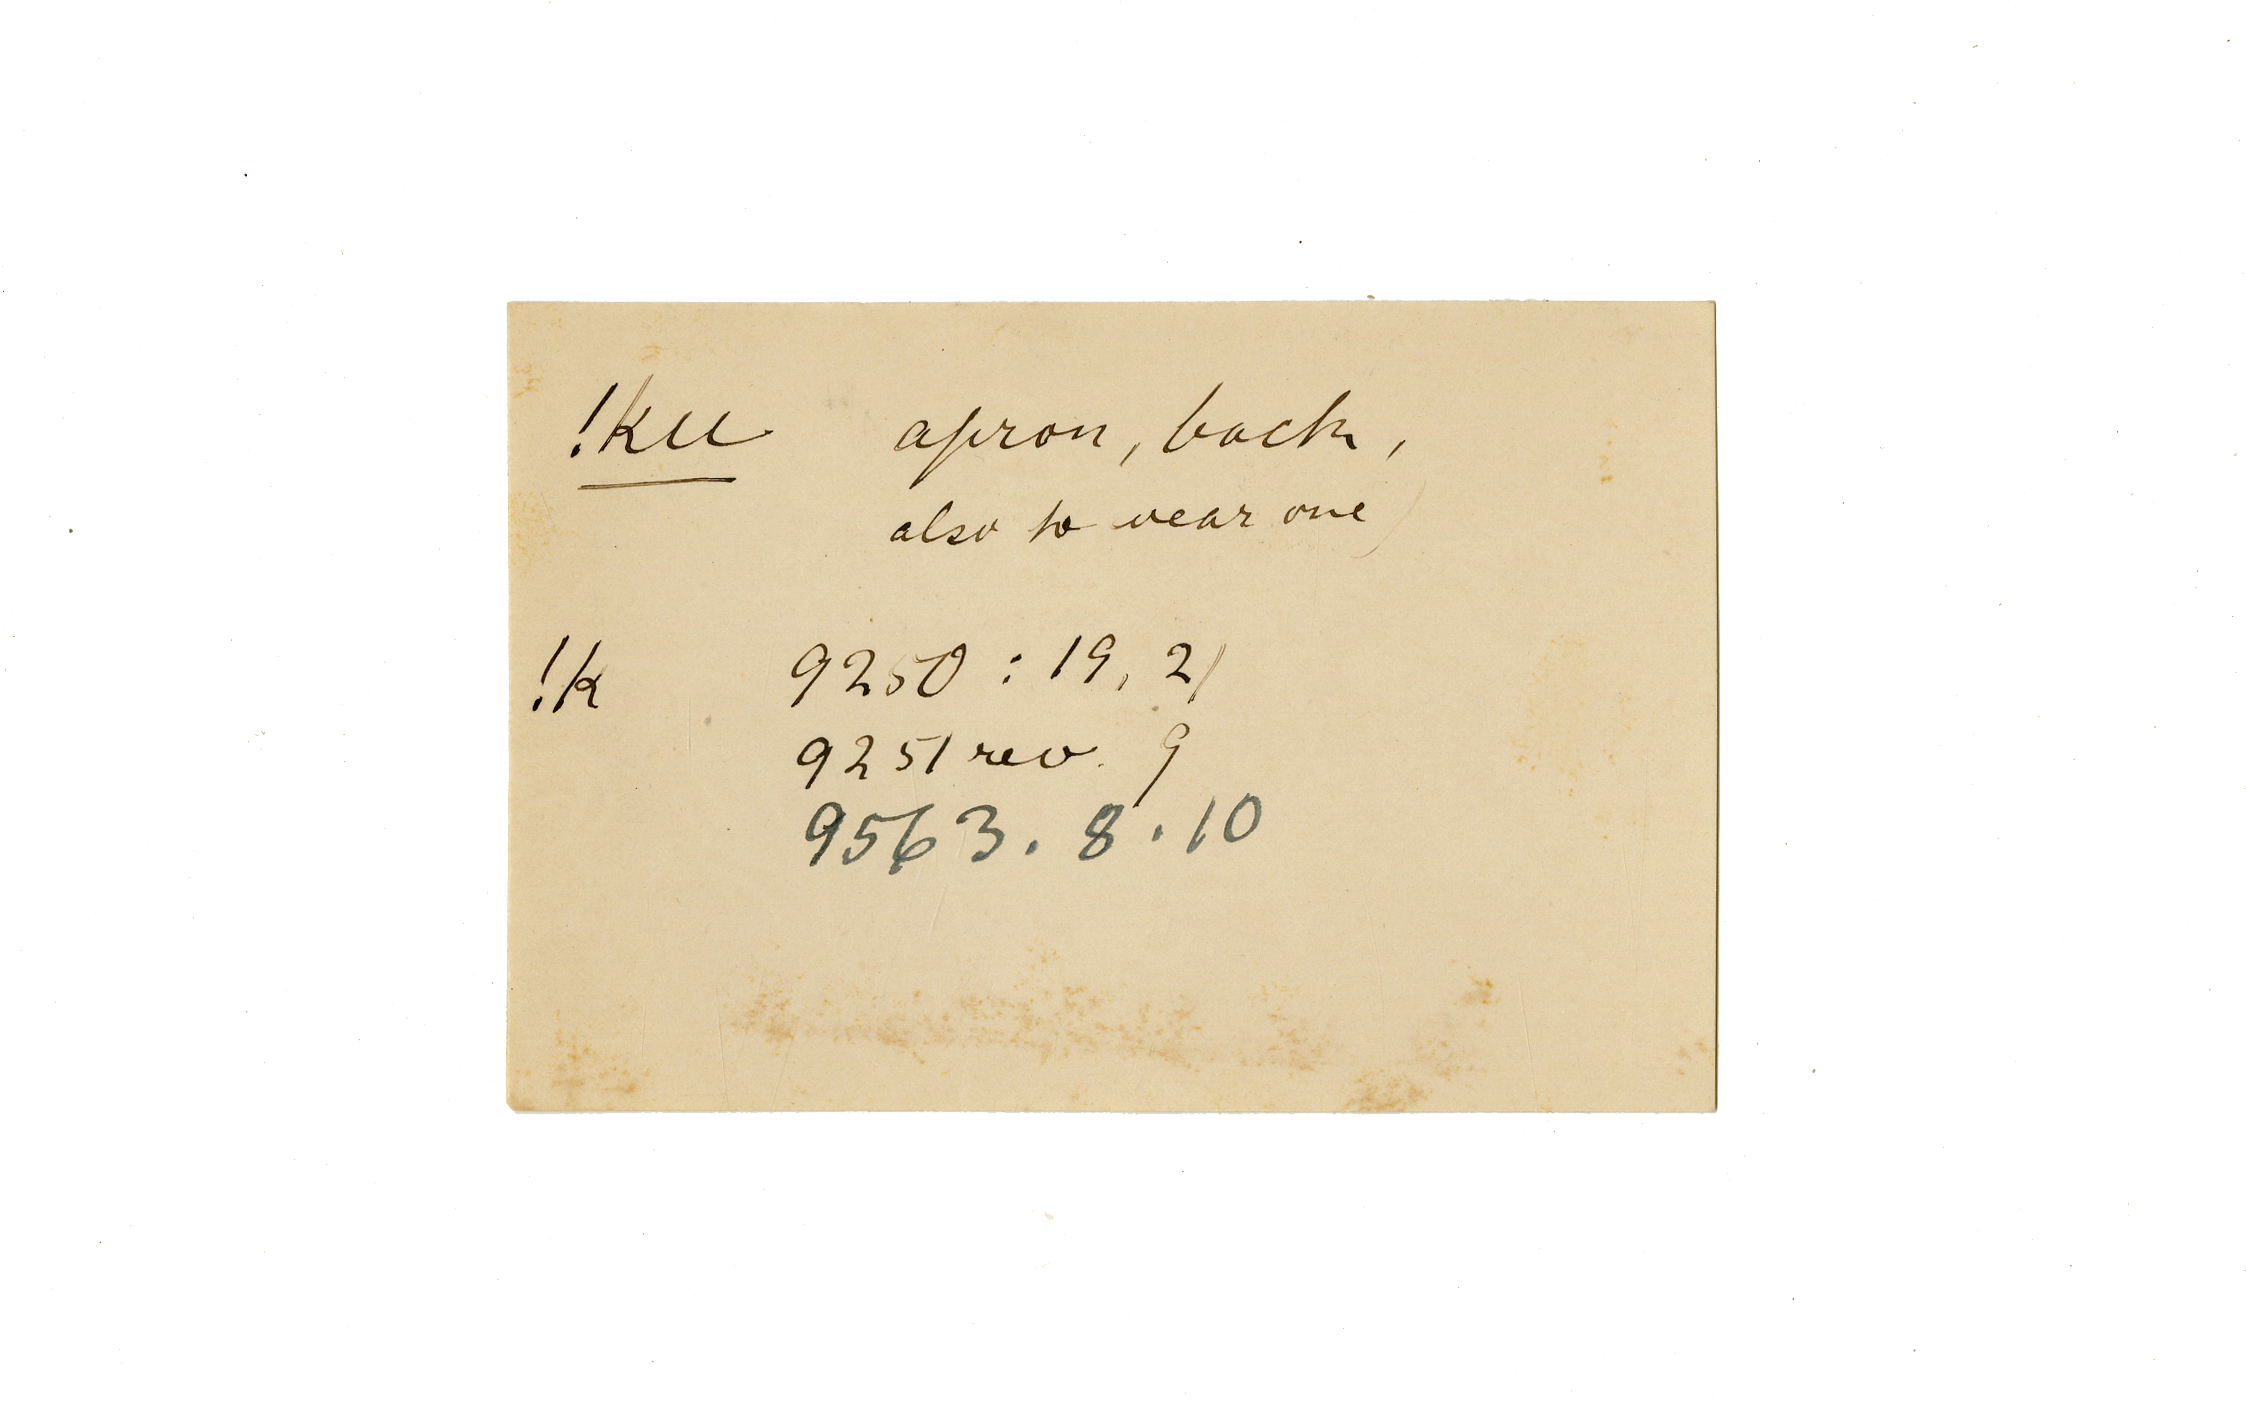 !ku apron, back,
also to wear one)
!k 9250 : 19, 21
9251 rev. 9
9563. 8. 10